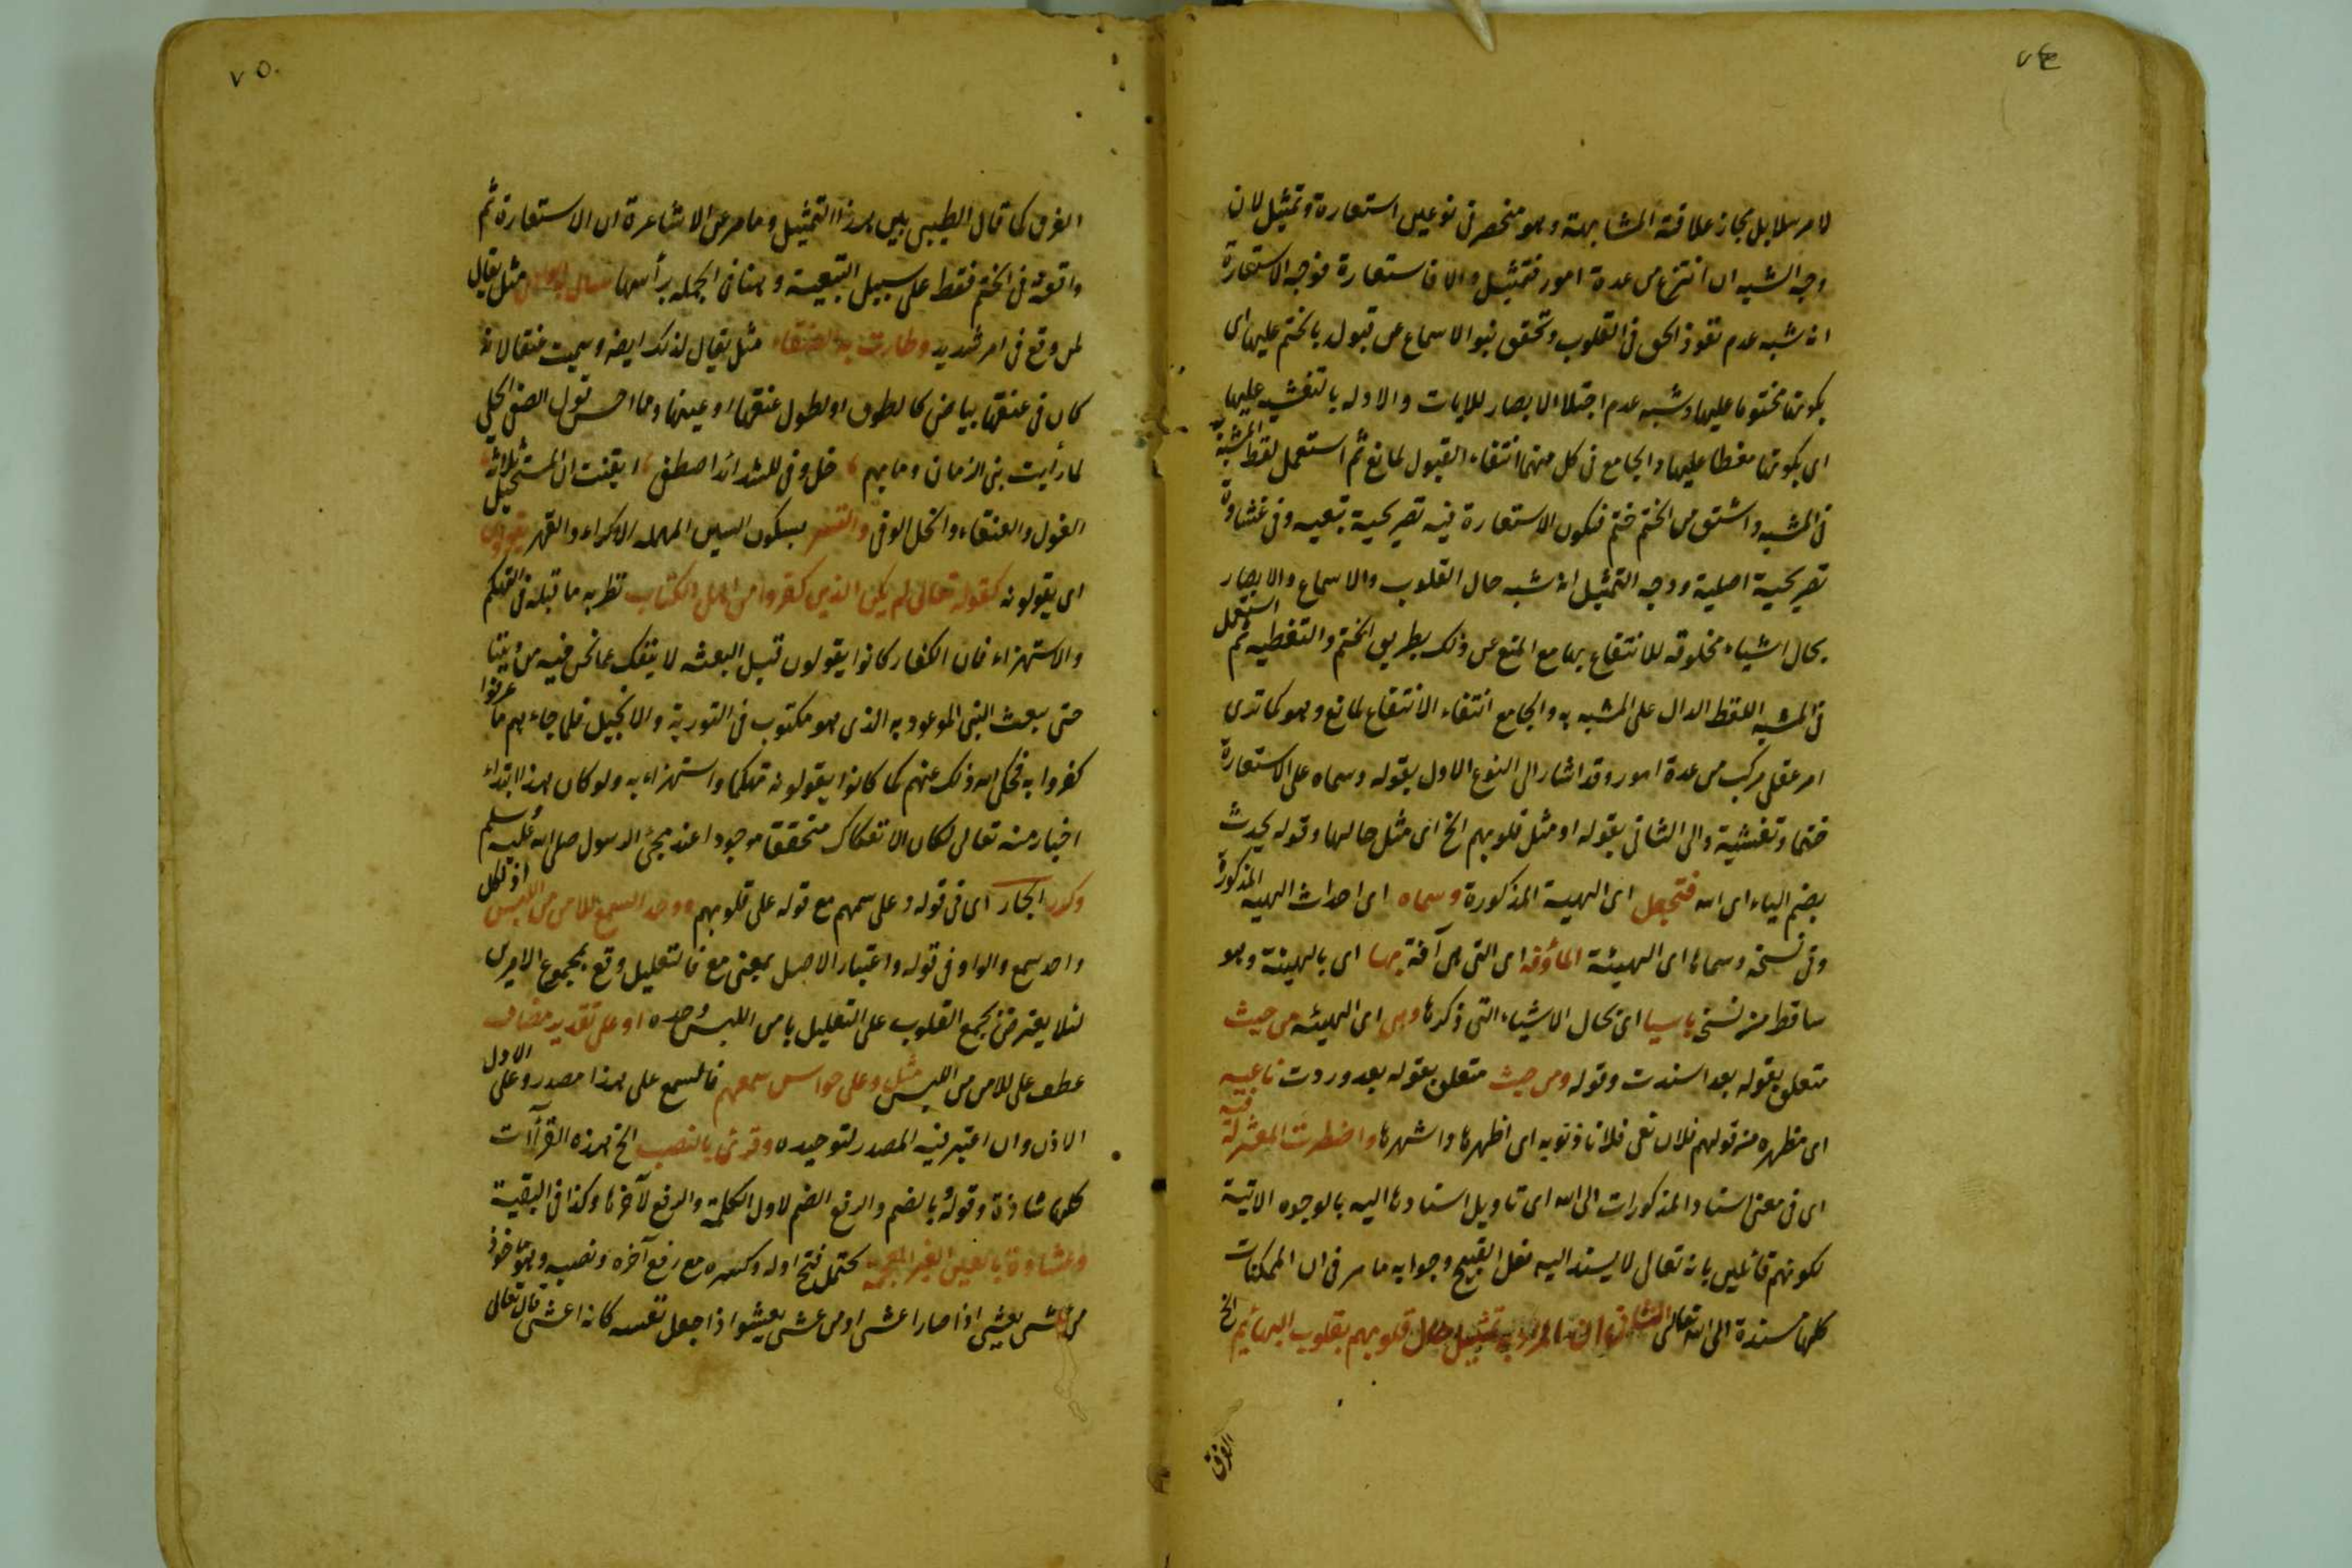 ٧٤
لا مرسلا بل مجاز علاقته المشابهة وهو منحصر فى نوعين استعارة وتمثيل لان
وجه الشبه ان انتزع من عدة امور فتمثيل والا فاستعارة فوجه الاستعارة
انه شبه عدم نفوذ الحق فى القلوب وتحقق نبو الاسماع عن قبوله بالختم عليها اى
بكونها مختوما عليها وشبه عدم اجتلاء الابصار للايات والادله بالتغشيه عليها
اى بكونها مغطا عليها والجامع فى كل منهما انتفاء القبول لمانع ثم استعمل لفظ المشبه به
فى المشبه واشتق من الختم ختم فتكون الاستعارة فيه تصريحية تبعيه وفى غشاوة
تصريحية اصلية ووجه التمثيل انه شبه حال القلوب والاسماع والابصار
بحال اشياء مخلوقه للانتفاع بها مع المنع عن ذلك بطريق الختم والتغطيه ثم استعمل
فى المشبه اللفظ الدال على المشبه به والجامع انتفاء الانتفاع لمانع وهو كما ترى
امر عقلى مركب من عدة امور وقد اشار الى النوع الاول بقوله وسماه على الاستعارة
ختما وتغشية والى الثانى بقوله او مثل قلوبهم الخ اى مثل حالها وقوله يحدث
بضم الياء اى الله فتجعل اى الهيية المذكورة وسماه اى احداث الهييه المذكورة
وفى نسخة وسماها اى الهيئة المأوفه اى التى هى آفة بها اى بالهيئة وهو
ساقط من نسخ باسيا اى بحال الاشياء التى ذكرها وهى اى الهيئه من حيث
متعلق بقوله بعد اسندت وقوله ومن حيث متعلق بقوله بعد وردت ناعيه
اى مظهره من قولهم فلان نعى فلانا ذنوبه اى اظهرها واشهرها واضطرت المعتزلة فيه
اى فى معنى اسناد المذكورات الى الله اى تاويل اسنادها اليه بالوجوه الاتية
لكونهم قائلين بانه تعالى لا يسند اليه فعل القبيح وجوابه ما مر فى ان الممكنات
كلها مسندة الى الله تعالى الثانى ان المراد به تمثيل حال قلوبهم بقلوب البهائم الخ
الفرق
٧٥
الفرق كما قال الطيبى بين هذا التمثيل وما مر عن الاشاعرة ان الاستعارة ثم
واقعة فى الختم فقط على سبيل التبعية وهنا فى الجمله برأسها سال الوادى مثل يقال
لمن وقع فى امر شديد وطارت به العنقاء مثل يقال لذلك ايضا وسميت عنقا لانه
كان فى عنقها بياض كالطوق او لطول عنقها او عينها وما احسن قول الصفى الحلى
لما رأيت بنى الزمان وما بهم خل وفى للشدائد اصطفى ايقنت ان المستحيل ثلاثة
الغول والعنقاء والخل الوفى والقسر بسكون السين المهمله الاكراه والقهر يقولون
اى يقولونه كقوله تعالى لم يكن الذين كفروا من اهل الكتاب نظر به ما قبله فى التهكم
والاستهزاء فان الكفار كانوا يقولون قبل البعثه لا ينفك عما نحن فيه من ديننا
حتى يبعث النبى الموعود به الذى هو مكتوب فى التورية والانجيل فلما جاءهم ما عرفوا
كفروا به فحكى الله ذلك عنهم كما كانوا يقولونه تهكما واستهزاء به ولو كان هذا ابتداء
اخبار منه تعالى لكان الانفكاك متحققا موجودا عند مجئ الرسول صلى الله عليه وسلم
وكرر الجار اى فى قوله وعلى سمعهم مع قوله على قلوبهم ووحد السمع للامن من اللبس اذ لكل
واحد سمع والواو فى قوله واعتبار الاصل بمعنى مع فالتعليل وقع بمجموع الامرين
لئلا يعترض بجمع القلوب على التعليل بامن اللبس وحده او على تقدير مضاف
عطف على للامن من اللبس مثل وعلى حواس سمعهم فالسمع على هذا مصدر وعلى الاول
الاذن وان اعتبر فيه المصدر لتوحيده وقرئ بالنصب الخ هذه القرآآت
كلها شاذة وقوله بالضم والرفع الضم لاول الكلمة والرفع لآخرها وكذا فى البقية
وعشاوة بالعين الغير المعجمة يحتمل فتح اوله وكسره مع رفع آخره ونصبه وهو ماخوذ
من عشى يعشى اذا صار اعشى او من عشى يعشوا اذا جعل نفسه كانه اعشى قال تعالى